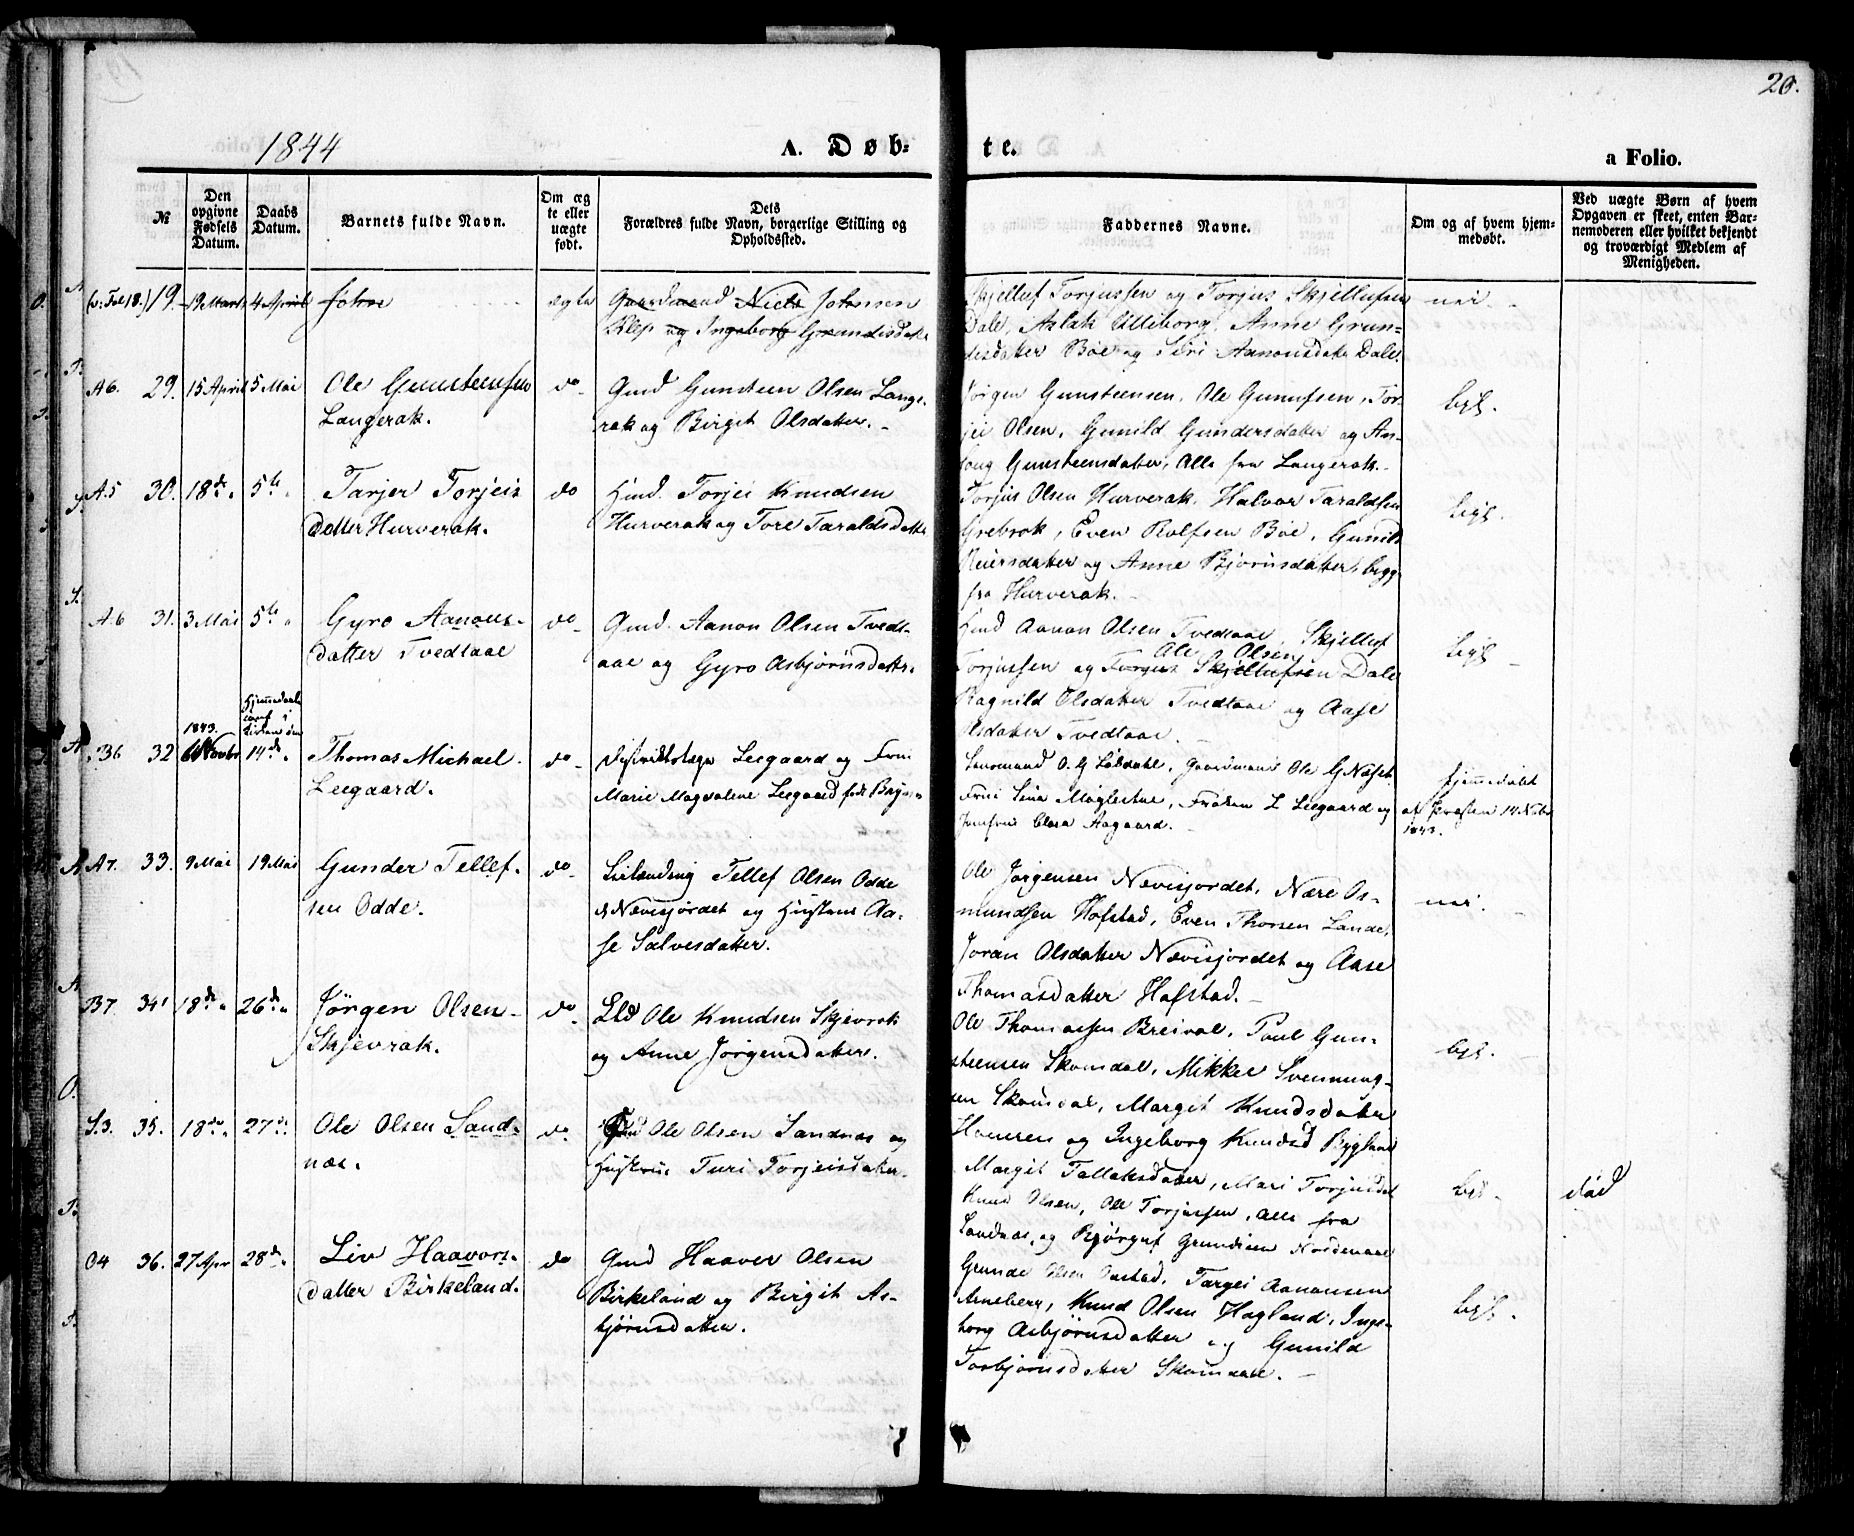 20.
1844
A. Døb-
te.
a Folio.
№
Den opgivne Fødsels Datum.
Daabs Datum.
Barnets fulde Navn.
Om ægte eller uægte født.
Dets Forældres fulde Navn, borgerlige Stilling og Opholdssted.
Faddernes Navne.
Om og af hvem hjemmedøbt.
Ved uægte Børn af hvem Opgaven er skeet, enten Barnemoderen eller hvilket bekjendt og troværdigt Medlem af Menigheden.
(v: Fol 18.) 19. 19 Marts 4 April John ægte Gaardmand Niels Johnsen
Klep og Ingeborg Grundesdatter
Skjelluf Torjussen og Torjus Skjellufsen
Dale, Aslak Ulliborg, Anne Grun-
desdatter Bøe og Siri Aanonsdatter Dale.
nei.
A6. 29. 15 April 5 Mai Ole Gunsteensen
Langerak.
do
Gmd Gunsteen Olsen Lange-
rak og Birgit Olsdatter.
Jørgen Gunsteensen, Ole Gunufsen, Tor-
jei Olsen, Gunild Gundersdatter og An-
laug Gunsteensdatter, Alle fra Langerak.
bgl.
A5 30. 18de 5te Tarjer Torjeis
datter Hurverak.
do
Hmd. Torjei Knudsen
Hurverak og Tore Taraldsdatter
Torjus Olsen Hurverak, Halvor Taraldsen
Grebrok, Even Rolfsen Bøe, Gunild
Reiersdatter og Anne Bjørnsdatter, begge
fra Hurverak.
bgl.
A.6 31. 3 Mai 5te Gyro Aanons-
datter Tvedtaae
do
Gmd. Aanon Olsen Tvedt-
aae og Gyro Asbjørnsdatter.
Hmd Aanon Olsen Tvedtaae, Skjelluf
Ole Olsen
Torjussen og Torjus Skjellufsen Dale
Ragnild Olsdatter Tvedtaae og Aase
Olsdatter Tvedtaae.
bgl
B6 32 1843. Novbr 14de Thomas Michael
Leegaard.
do
Distriktslæge Leegaard og Frue
Marie Magdalene Leegaard født
Lensmand O. G. Lildahl, Gaardmand Ole G Næset
Frue Sina Møglestue, Frøken L Leegaard og
Jomfrue Clara Aagaard.
hjemmedøbt
af Præsten 14 Novbr
1843.
A7. 33. 9 Mai 19 Mai Gunder Tellef-
sen Odde.
do
Tellef Olsen Odde
Nævisjordet og Hustrue Aa-
se Salvesdatter.
Ole Jørgensen Nævisjordet, Nære Os-
mundsen Hofstad, Even Thorsen Lande,
Joran Olsdatter Nævisjordet og Aase
Thomasdatter Hofstad.
nei.
B7 34 18de 26de Jørgen Olsen
Skjevrak.
do
Ole Knudsen Skjevrak
og Anne Jørgensdatter.
Ole Thomassen Breivol, Poul Gun-
steensen Skomdal, Mikkel Svennung-
sen Skomdal, Margit Knudsdatter
og Ingeborg Knudsd Bygland
bgl.
S.3. 35. 18de 27de Ole Olsen Sand-
næs.
do
Ole Olsen Sandnæs og
Hustrue Turi Torjeisdatter.
Margit Tallaksdatter, Mari Torjusdtr
Knud Olsen, Ole Torjussen, alle fra
Sandnæs, og Bjørguf Grundesen
bgl
død
O4 36. 27 Apr 28de Liv Haavors-
datter Birkeland.
do
Gmd Haavor Olsen
Birkeland og Birgit As-
bjørnsdatter.
Grunde Olsen Austad, Targei Aanonsen
Arneberg, Knud Olsen Hagland, Inge-
borg Asbjørnsdatter og Gunild
Torbjørnsdatter Skomdal.
bgl.